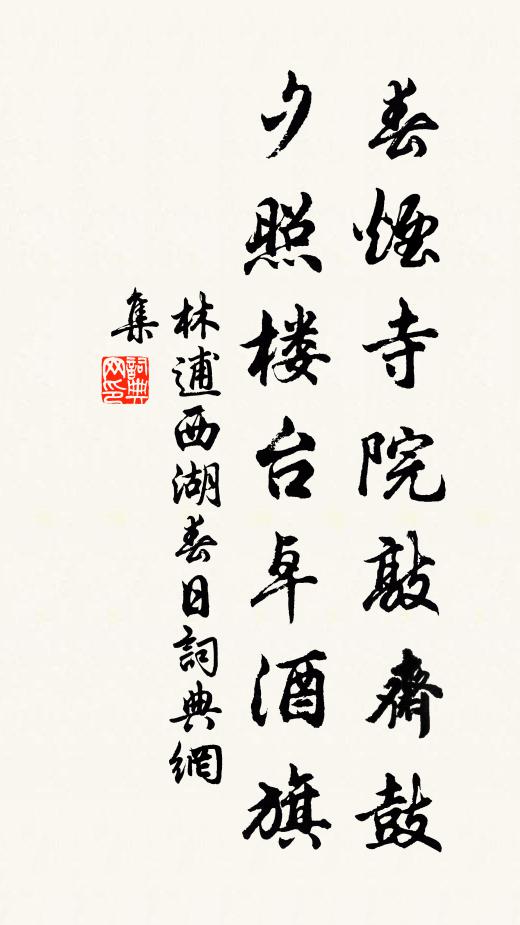 春煙寺院敲齋鼓
夕照楼台卓酒旗
林逋西湖春日詞典網
集
詞典网印